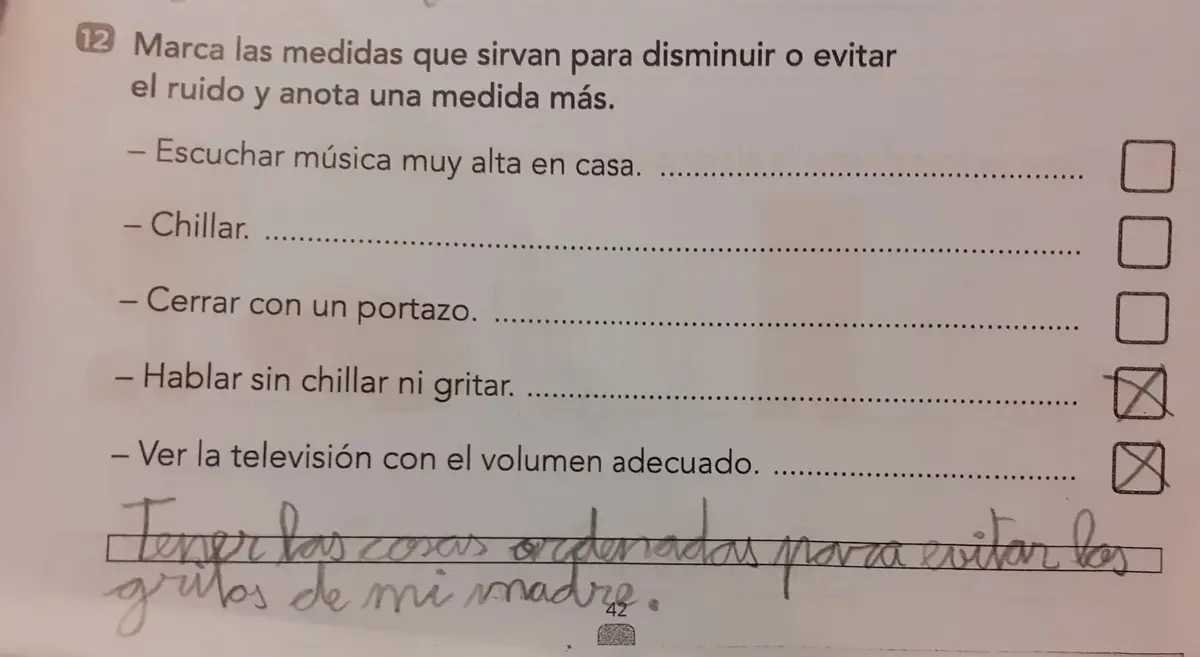 12 Marca las medidas que sirvan para disminuir o evitar
el ruido y anota una medida más.
– Escuchar música muy alta en casa. ........................................
– Chillar. ........................................
– Cerrar con un portazo. ........................................
– Hablar sin chillar ni gritar. ........................................
– Ver la televisión con el volumen adecuado. ........................................
Tener las cosas ordenadas para evitar los
gritos de mi madre.
42